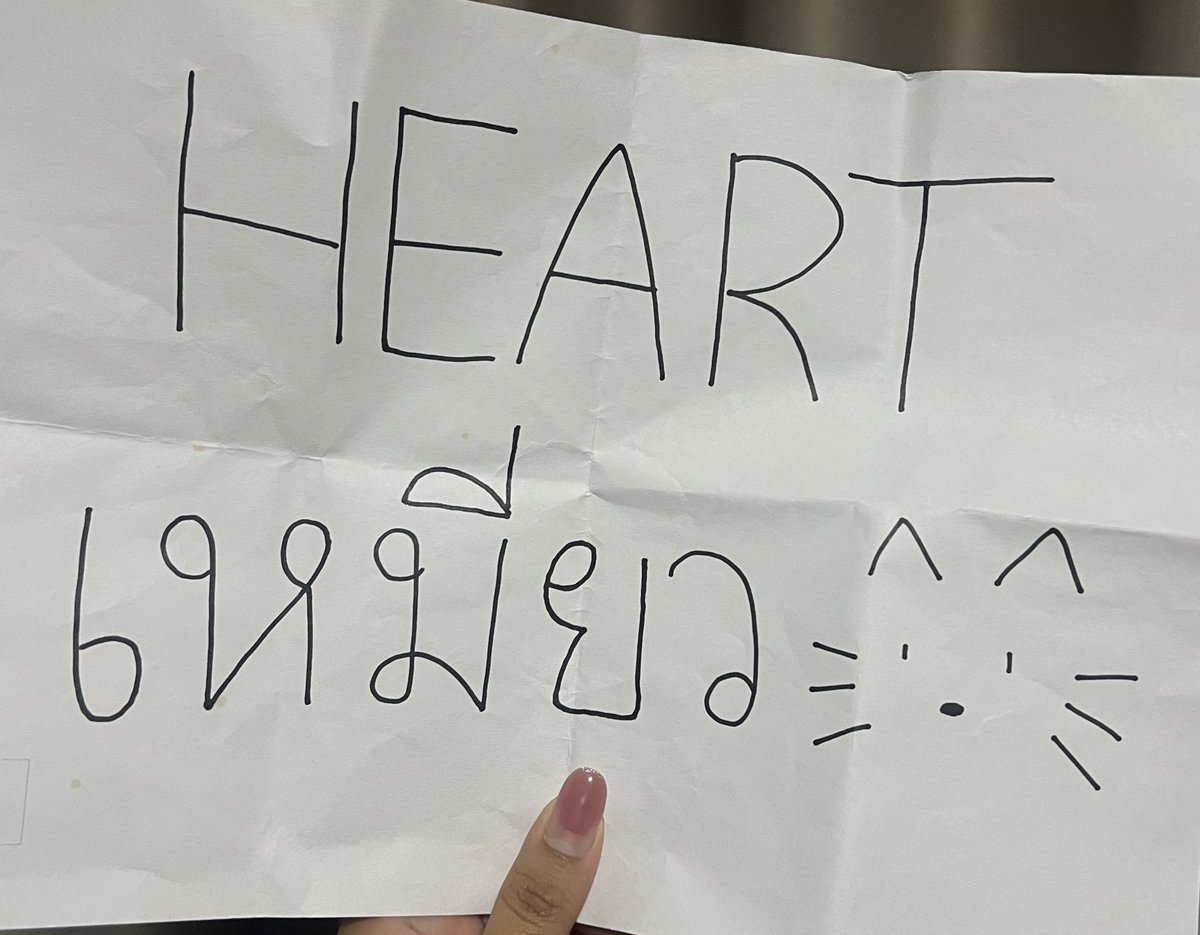 HEART
เหมียว